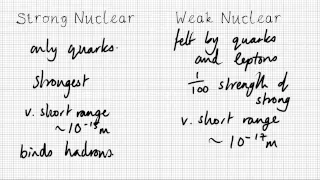 Strong Nuclear
only quarks.
strongest
v. short range
~ 10⁻¹⁵m
binds hadrons.
Weak Nuclear
felt by quarks
and leptons
1/100 strength of
strong
v. short range
~ 10⁻¹⁷m